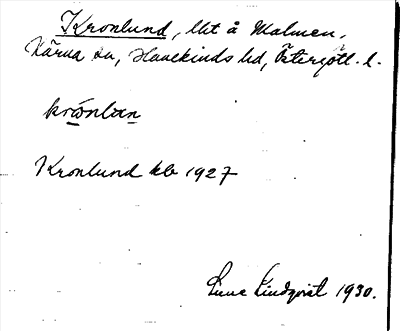 Kronlund, lht å Malmen,
Kärna sn, Hanekinds hd, Östergötl. l.
krónlan
Kronlund kb 1927
Sune Lindqvist 1930.